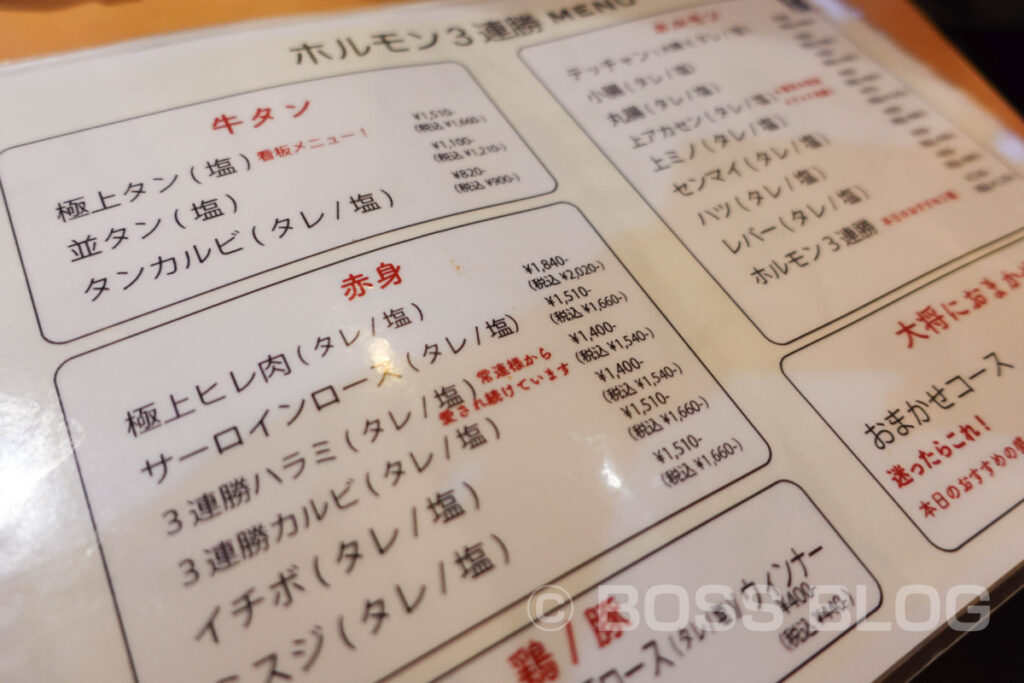 ホルモン3連勝 MENU
牛タン
極上タン(塩) 看板メニュー！ ¥1,510- (税込 ¥1,660-)
並タン(塩) ¥1,100- (税込 ¥1,210-)
タンカルビ(タレ/塩) ¥820- (税込 ¥900-)
赤身
極上ヒレ肉(タレ/塩) ¥1,840- (税込 ¥2,020-)
サーロインロース(タレ/塩) ¥1,510- (税込 ¥1,660-)
3連勝ハラミ(タレ/塩) 常連様から愛され続けています ¥1,400- (税込 ¥1,540-)
3連勝カルビ(タレ/塩) ¥1,400- (税込 ¥1,540-)
イチボ(タレ/塩) ¥1,510- (税込 ¥1,660-)
スジ(タレ/塩) ¥1,510- (税込 ¥1,660-)
鶏/豚
ロース(タレ/塩)/ウィンナー
¥400-
ホルモン
テッチャン
(タレ/塩)
小腸(タレ/塩)
丸腸(タレ/塩)
上アカセン(タレ/塩)
上ミノ(タレ/塩)
センマイ(タレ/塩)
ハツ(タレ/塩)
レバー(タレ/塩)
ホルモン3連勝
大将におまか
おまかせコース
迷ったらこれ！
本日のおすすめの
© BOSS BLOG